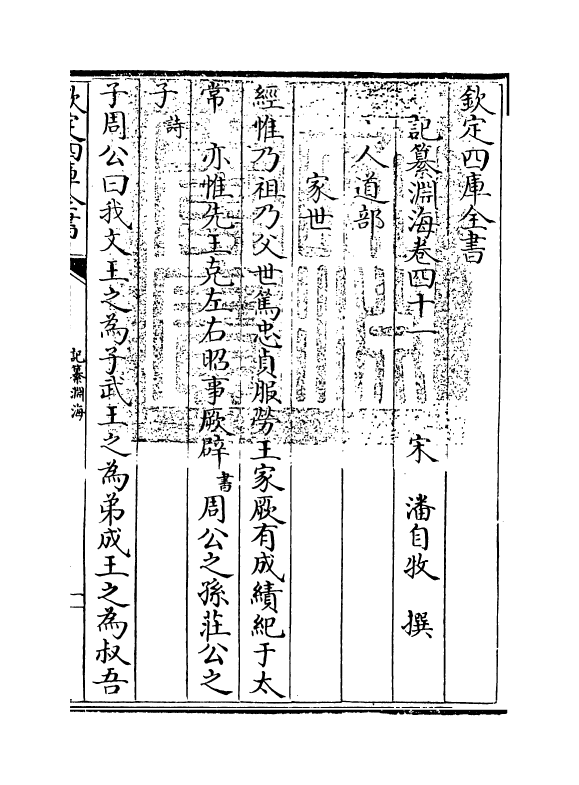 欽定四庫全書
記纂淵海卷四十一 宋 潘自牧 撰
人道部
家世
經惟乃祖乃父世篤忠貞服勞王家厥有成績紀于太
常 亦惟先王克左右昭事厥辟書周公之孫莊公之
子詩
子周公曰我文王之為子武王之為弟成王之為叔吾
欽定四庫全書 記纂淵海 一